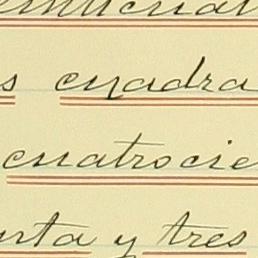 s cuadra
cuatrocie
nta y tres